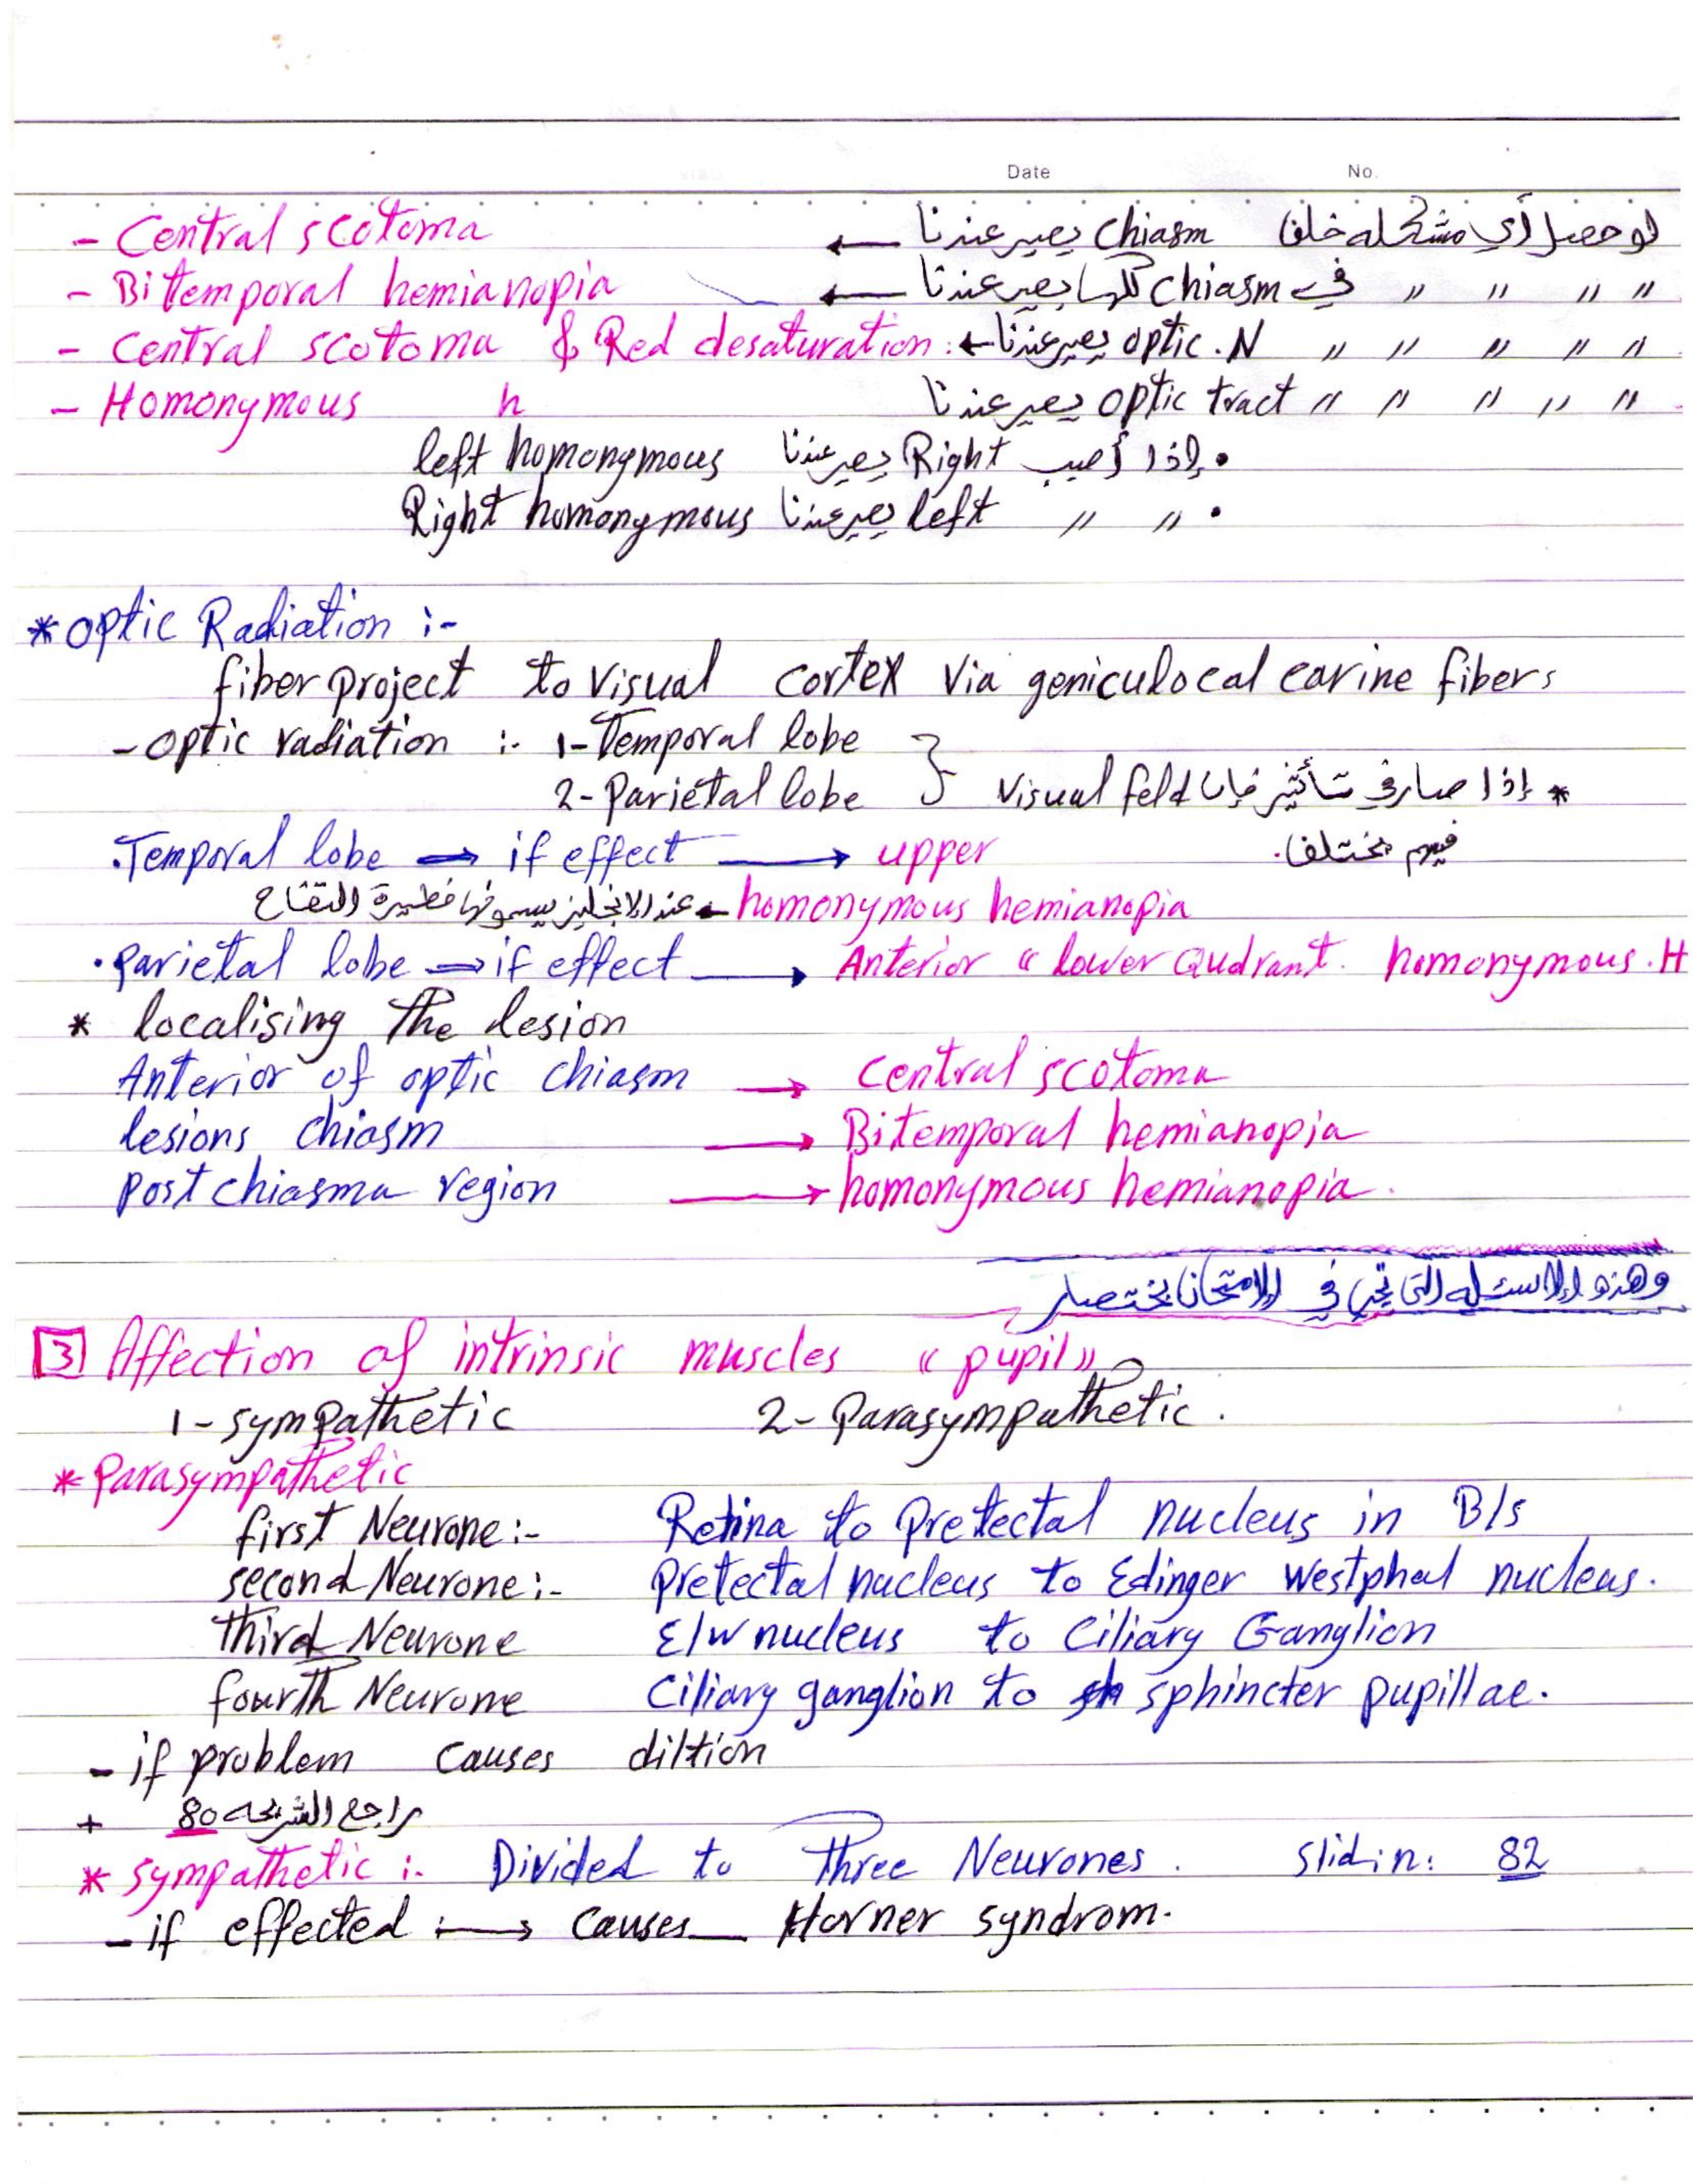 Date No.
- Central scotoma ← لو حصل أي مشكله خلف chiasm يصير عندنا
- Bitemporal hemianopia ← " " " " في chiasm كلها يصير عندنا
- Central scotoma & Red desaturation :← " " " " " optic . N يصير عندنا
- Homonymous h " " " " " optic tract يصير عندنا
• إذا أصيب Right يصير عندنا left homonymous
• " " left يصير عندنا Right homonymous
* optic Radiation :-
fiber project to visual cortex Via geniculocal carine fibers
- optic radiation :- 1- Temporal lobe
2- Parietal lobe } * إذا صار في تأثير فإن Visual feld
فيهم يختلف.
. Temporal lobe → if effect → upper
homonymous hemianopia ← عند الانجليز يسمونها فطيرة التفاح
• Parietal lobe → if effect → Anterior " lower Qudrant. homonymous . H
* localising The lesion
Anterior of optic chiasm → Central scotoma
lesions chiasm → Bitemporal hemianopia
Post chiasma region → homonymous hemianopia.
وهذه الاسئله التي تجي في الامتحان باختصار
3 Affection of intrinsic muscles " pupil "
1- sympathetic 2- Parasympathetic .
* Parasympathetic
first Neurone :- Retina to Pretectal nucleus in B/s
second Neurone :- Pretectal nucleus to Edinger westphal nucleus.
third Neurone E/w nucleus to Ciliary Ganglion
fourth Neurone Ciliary ganglion to sphincter pupillae.
- if problem causes diltion
+ راجع الشريحه 80
* sympathetic :- Divided to Three Neurones . slidin: 82
- if effected → causes Horner syndrom.